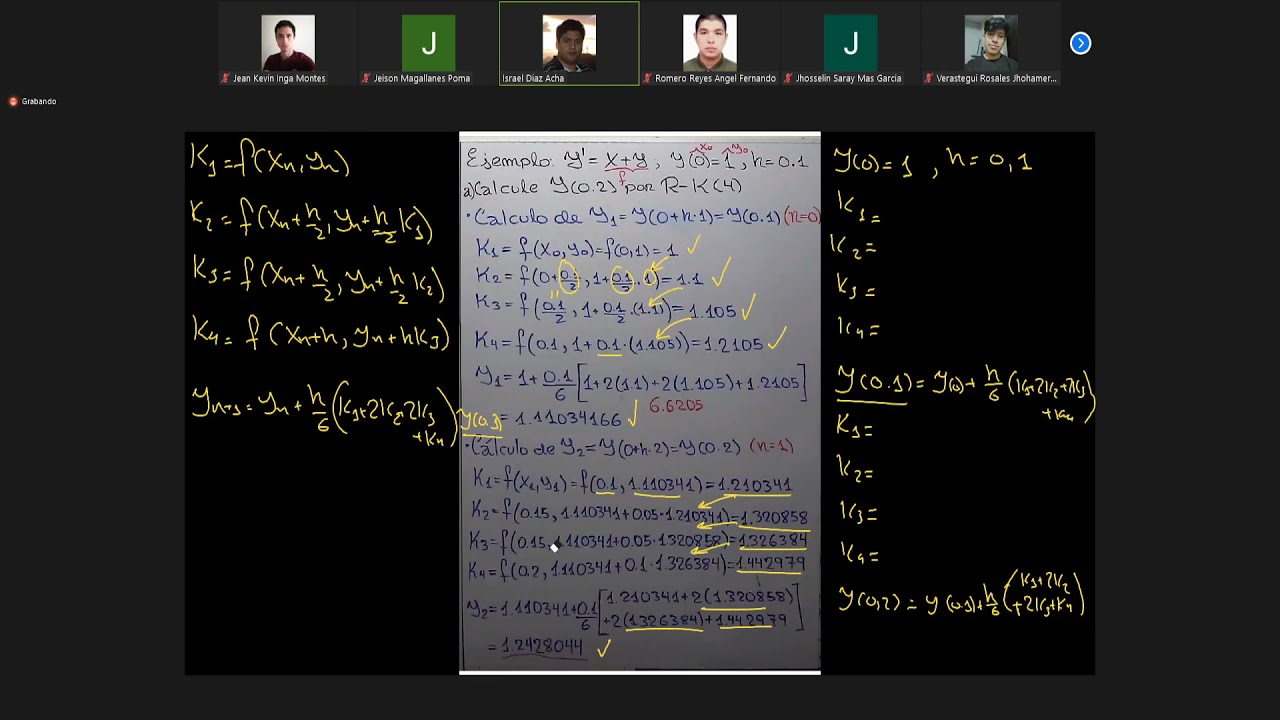 J
J
Jean Kevin Inga Montes
Jeison Magallanes Poma
Israel Diaz Acha
Romero Reyes Angel Fernando
Jhosselin Saray Mas Garcia
Verastegui Rosales Jhohamer...
Grabando
K1 = f(xn, yn)
K2 = f(xn + h/2, yn + h/2 K1)
K3 = f(xn + h/2, yn + h/2 K2)
K4 = f(xn + h, yn + hK3)
yn+1 = yn + h/6 (K1+2K2+2K3
+K4)
Ejemplo: y' = x+y, y(0)=1, h=0.1
f x0 y0
a) Calcule y(0.2) por R-K(4)
• Calculo de y1 = y(0+h·1) = y(0.1) (n=0)
K1 = f(x0, y0) = f(0,1) = 1 ✓
K2 = f(0+0.1/2, 1+0.1/2·1) = 1.1 ✓
K3 = f(0.1/2, 1+0.1/2·(1.1)) = 1.105 ✓
K4 = f(0.1, 1+0.1·(1.105)) = 1.2105 ✓
y1 = 1+0.1/6 [1+2(1.1)+2(1.105)+1.2105]
6.6205
= 1.11034166 ✓
• Cálculo de y2 = y(0+h·2) = y(0.2) (n=1)
K1 = f(x1, y1) = f(0.1, 1.110341) = 1.210341
K2 = f(0.15, 1.110341+0.05·1.210341) = 1.320858
K3 = f(0.15, 1.110341+0.05·1.320858) = 1.326384
K4 = f(0.2, 1.110341+0.1·1.326384) = 1.442979
y2 = 1.110341+0.1/6 [1.210341+2(1.320858)
+2(1.326384)+1.442979]
= 1.2428044 ✓
y(0)=1, h=0,1
K1 =
K2 =
K3 =
K4 =
y(0.1) = y(0) + h/6 (K1+2K2+2K3
+K4)
K1 =
K2 =
K3 =
K4 =
y(0,2) = y(0.1) + h/6 (K1+2K2
+2K3+K4)